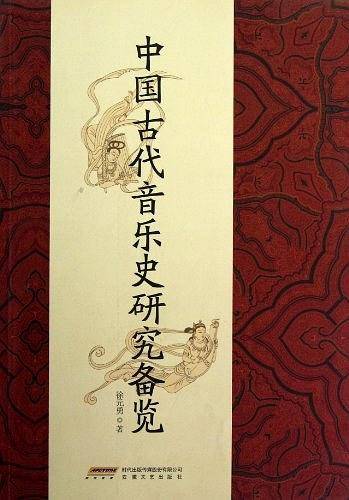 中国古代音乐史研究备览
徐元勇◎著
时代出版传媒股份有限公司
安徽文艺出版社